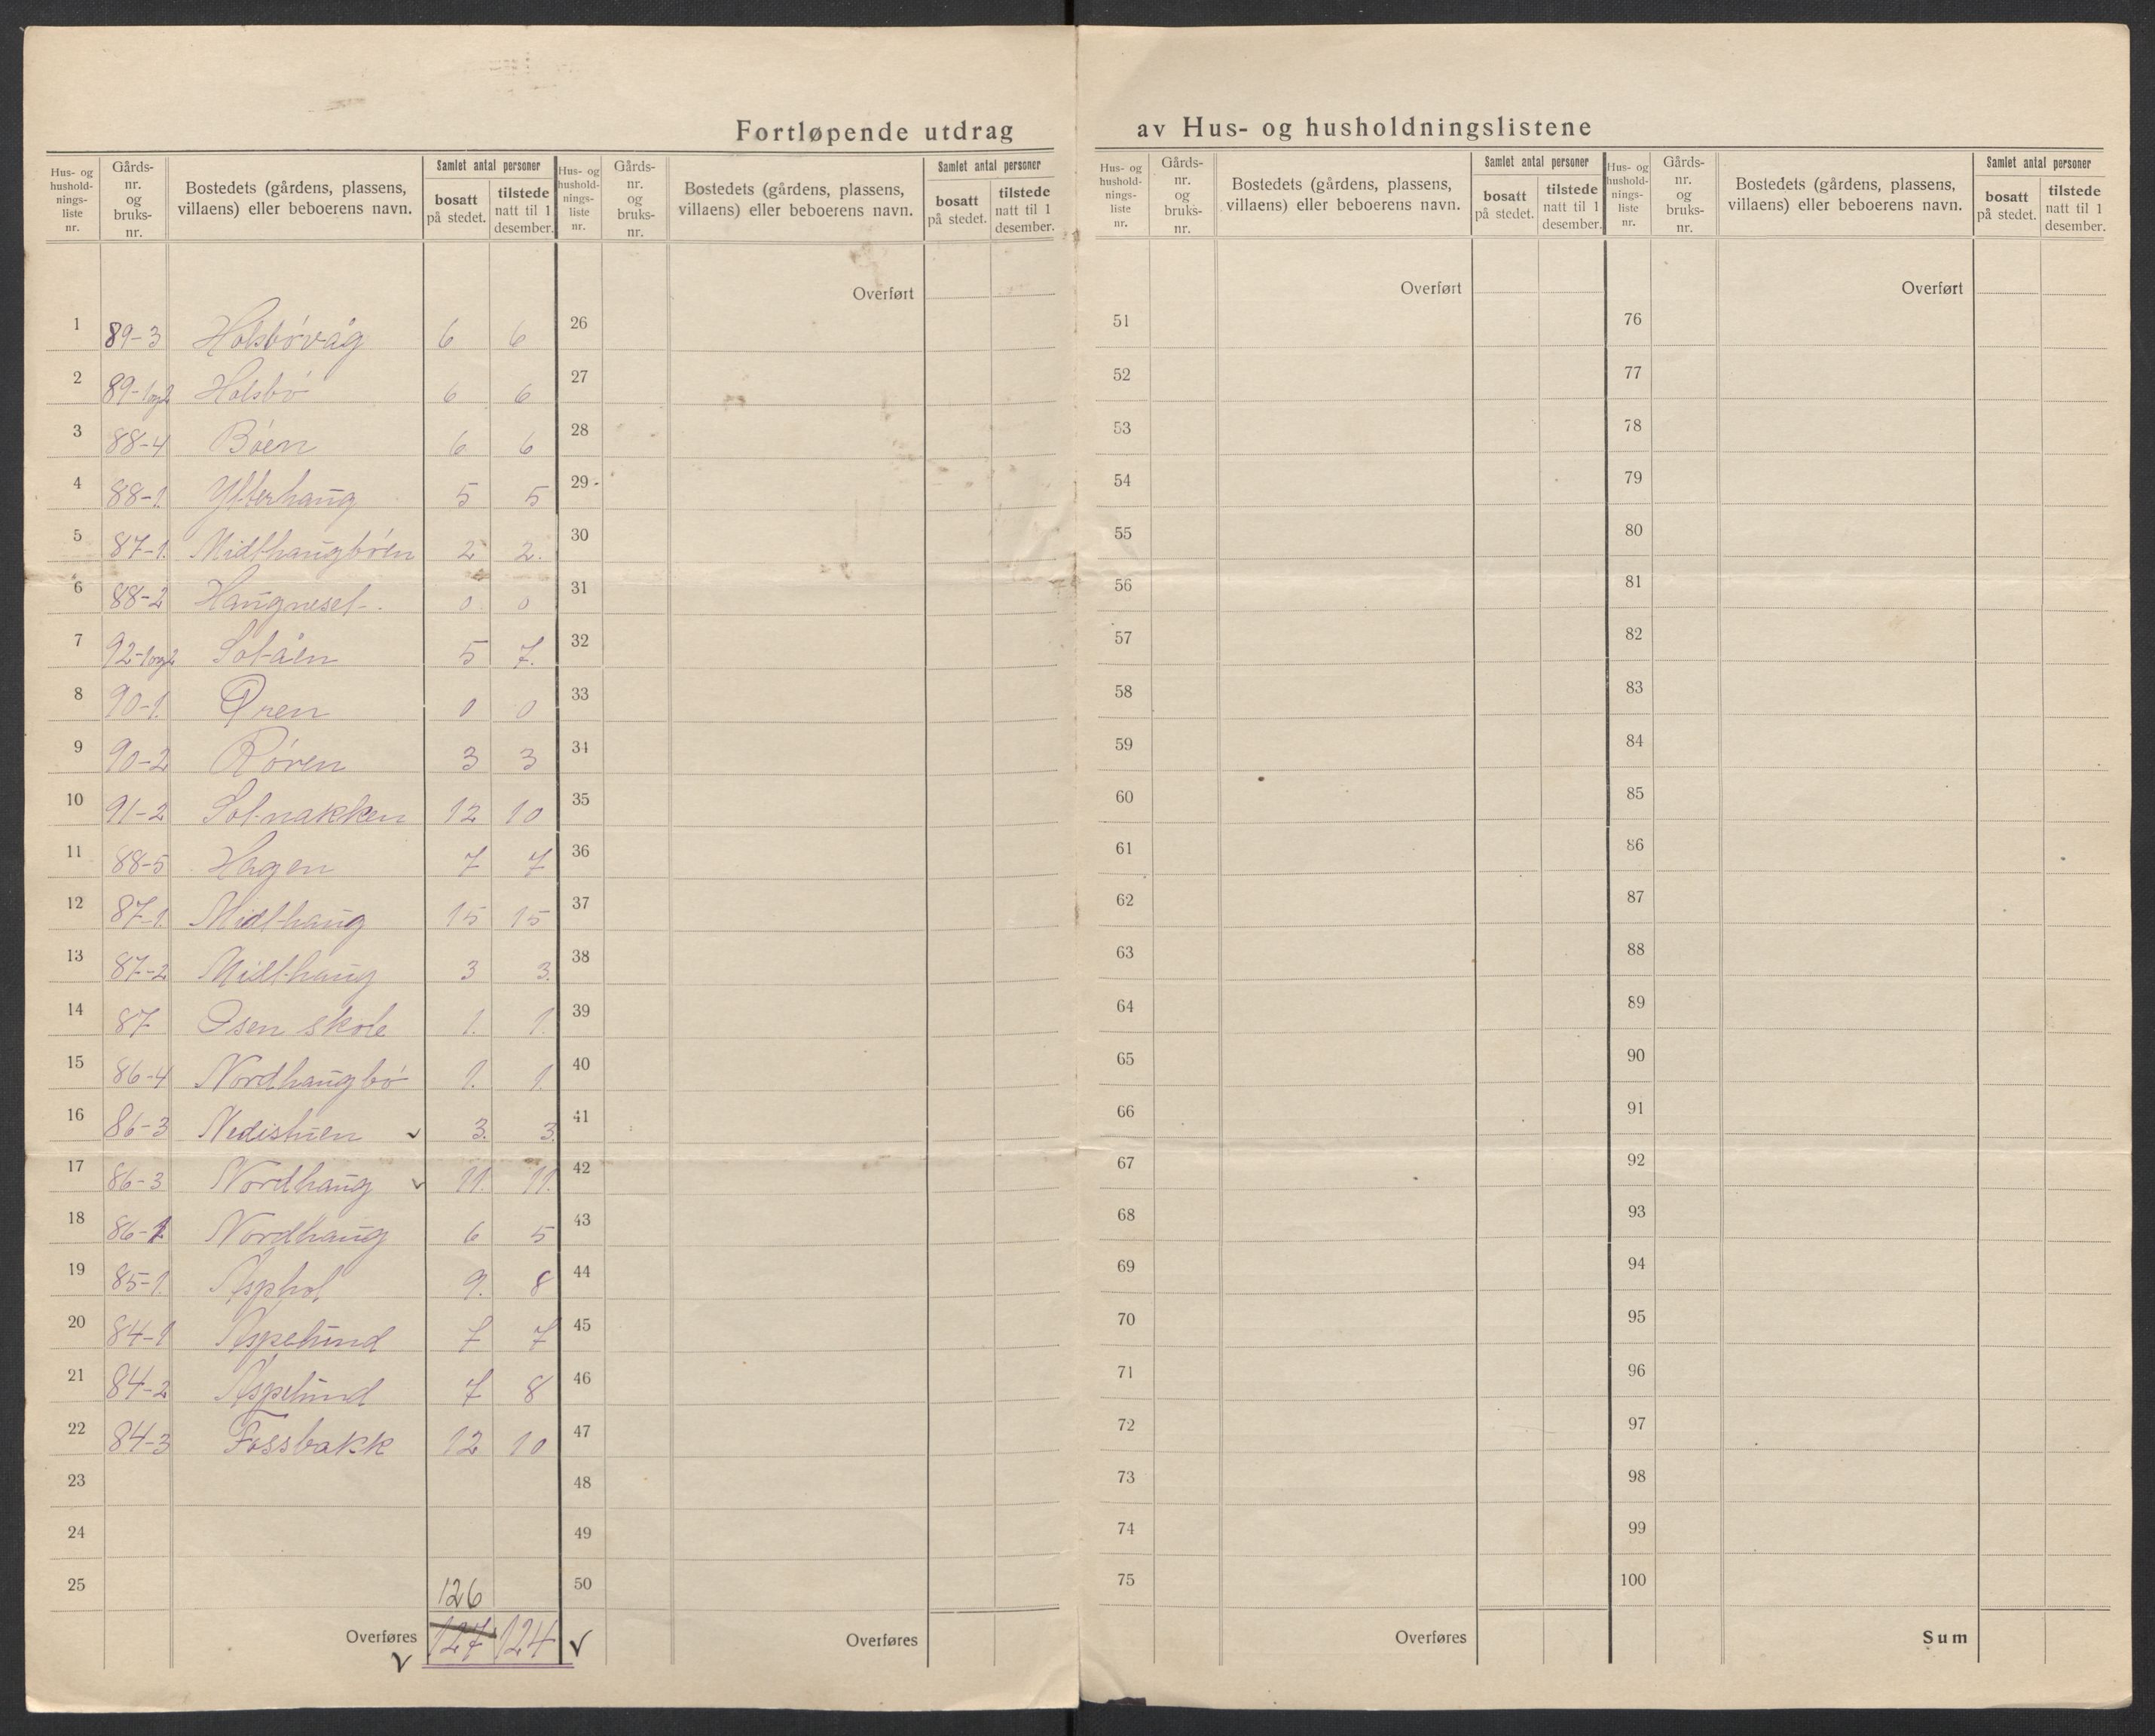 Fortløpende utdrag av Hus- og husholdningslistene
Hus- og hushold-nings-liste nr. | Gårds-nr. og bruks-nr. | Bostedets (gårdens, plassens, villaens) eller beboerens navn. | Samlet antal personer | bosatt på stedet. | tilstede natt til 1 desember.
1 89-3 Holsbövåg 6 6
2 89-1og2 Holsbö 6 6
3 88-4 Böen 6 6
4 88-1. Ytterhaug 5 5
5 87-1. Midthaugböen 2 2.
6 88-2 Haugneset. 0 0
7 92-1og2 Solåen 5 7.
8 90-1. Øren 0 0
9 90-2 Rören 3 3
10 91-2 Solnakken 12 10
11 88-5 Hagen 7 7
12 87-1. Midthaug 15 15
13 87-2 Midthaug 3 3.
14 87 Osen skole 1. 1.
15 86-4 Nordhaugbö 1. 1.
16 86-3 Nedistuen 3. 3.
17 86-3 Nordhaug 11. 11.
18 86-1 Nordhaug 6 5
19 85-1. Asphol 9. 8
20 84-1 Aspelund 7 7
21 84-2 Aspelund 7 8
22 84-3 Fossbakk 12 10
23
24
25 126
Overføres 127 124
Hus- og hushold-nings-liste nr. | Gårds-nr. og bruks-nr. | Bostedets (gårdens, plassens, villaens) eller beboerens navn. | Samlet antal personer | bosatt på stedet. | tilstede natt til 1 desember.
Overført
26
27
28
29
30
31
32
33
34
35
36
37
38
39
40
41
42
43
44
45
46
47
48
49
50
Overføres
Hus- og hushold-nings-liste nr. | Gårds-nr. og bruks-nr. | Bostedets (gårdens, plassens, villaens) eller beboerens navn. | Samlet antal personer | bosatt på stedet. | tilstede natt til 1 desember.
Overført
51
52
53
54
55
56
57
58
59
60
61
62
63
64
65
66
67
68
69
70
71
72
73
74
75
Overføres
Hus- og hushold-nings-liste nr. | Gårds-nr. og bruks-nr. | Bostedets (gårdens, plassens, villaens) eller beboerens navn. | Samlet antal personer | bosatt på stedet. | tilstede natt til 1 desember.
Overført
76
77
78
79
80
81
82
83
84
85
86
87
88
89
90
91
92
93
94
95
96
97
98
99
100
Sum